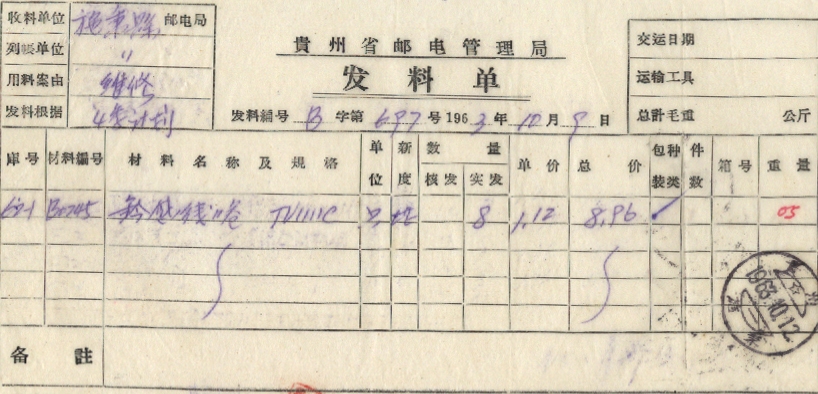 收料单位 施秉縣 邮电局
列賬单位 〃
用料案由 维修
发料根据 4季计划
貴州省邮电管理局
发料单
发料編号 B 字第 697 号 1963年10月9日
交运日期
运输工具
总計毛重 公斤
庫号 材料編号 材料名称及規格 单位 新度 数量 核发 实发 单价 总价 包装种类 件数 箱号 重量
B0745 铃 线 8 1.12 8.96 05
1963.10.12
备註